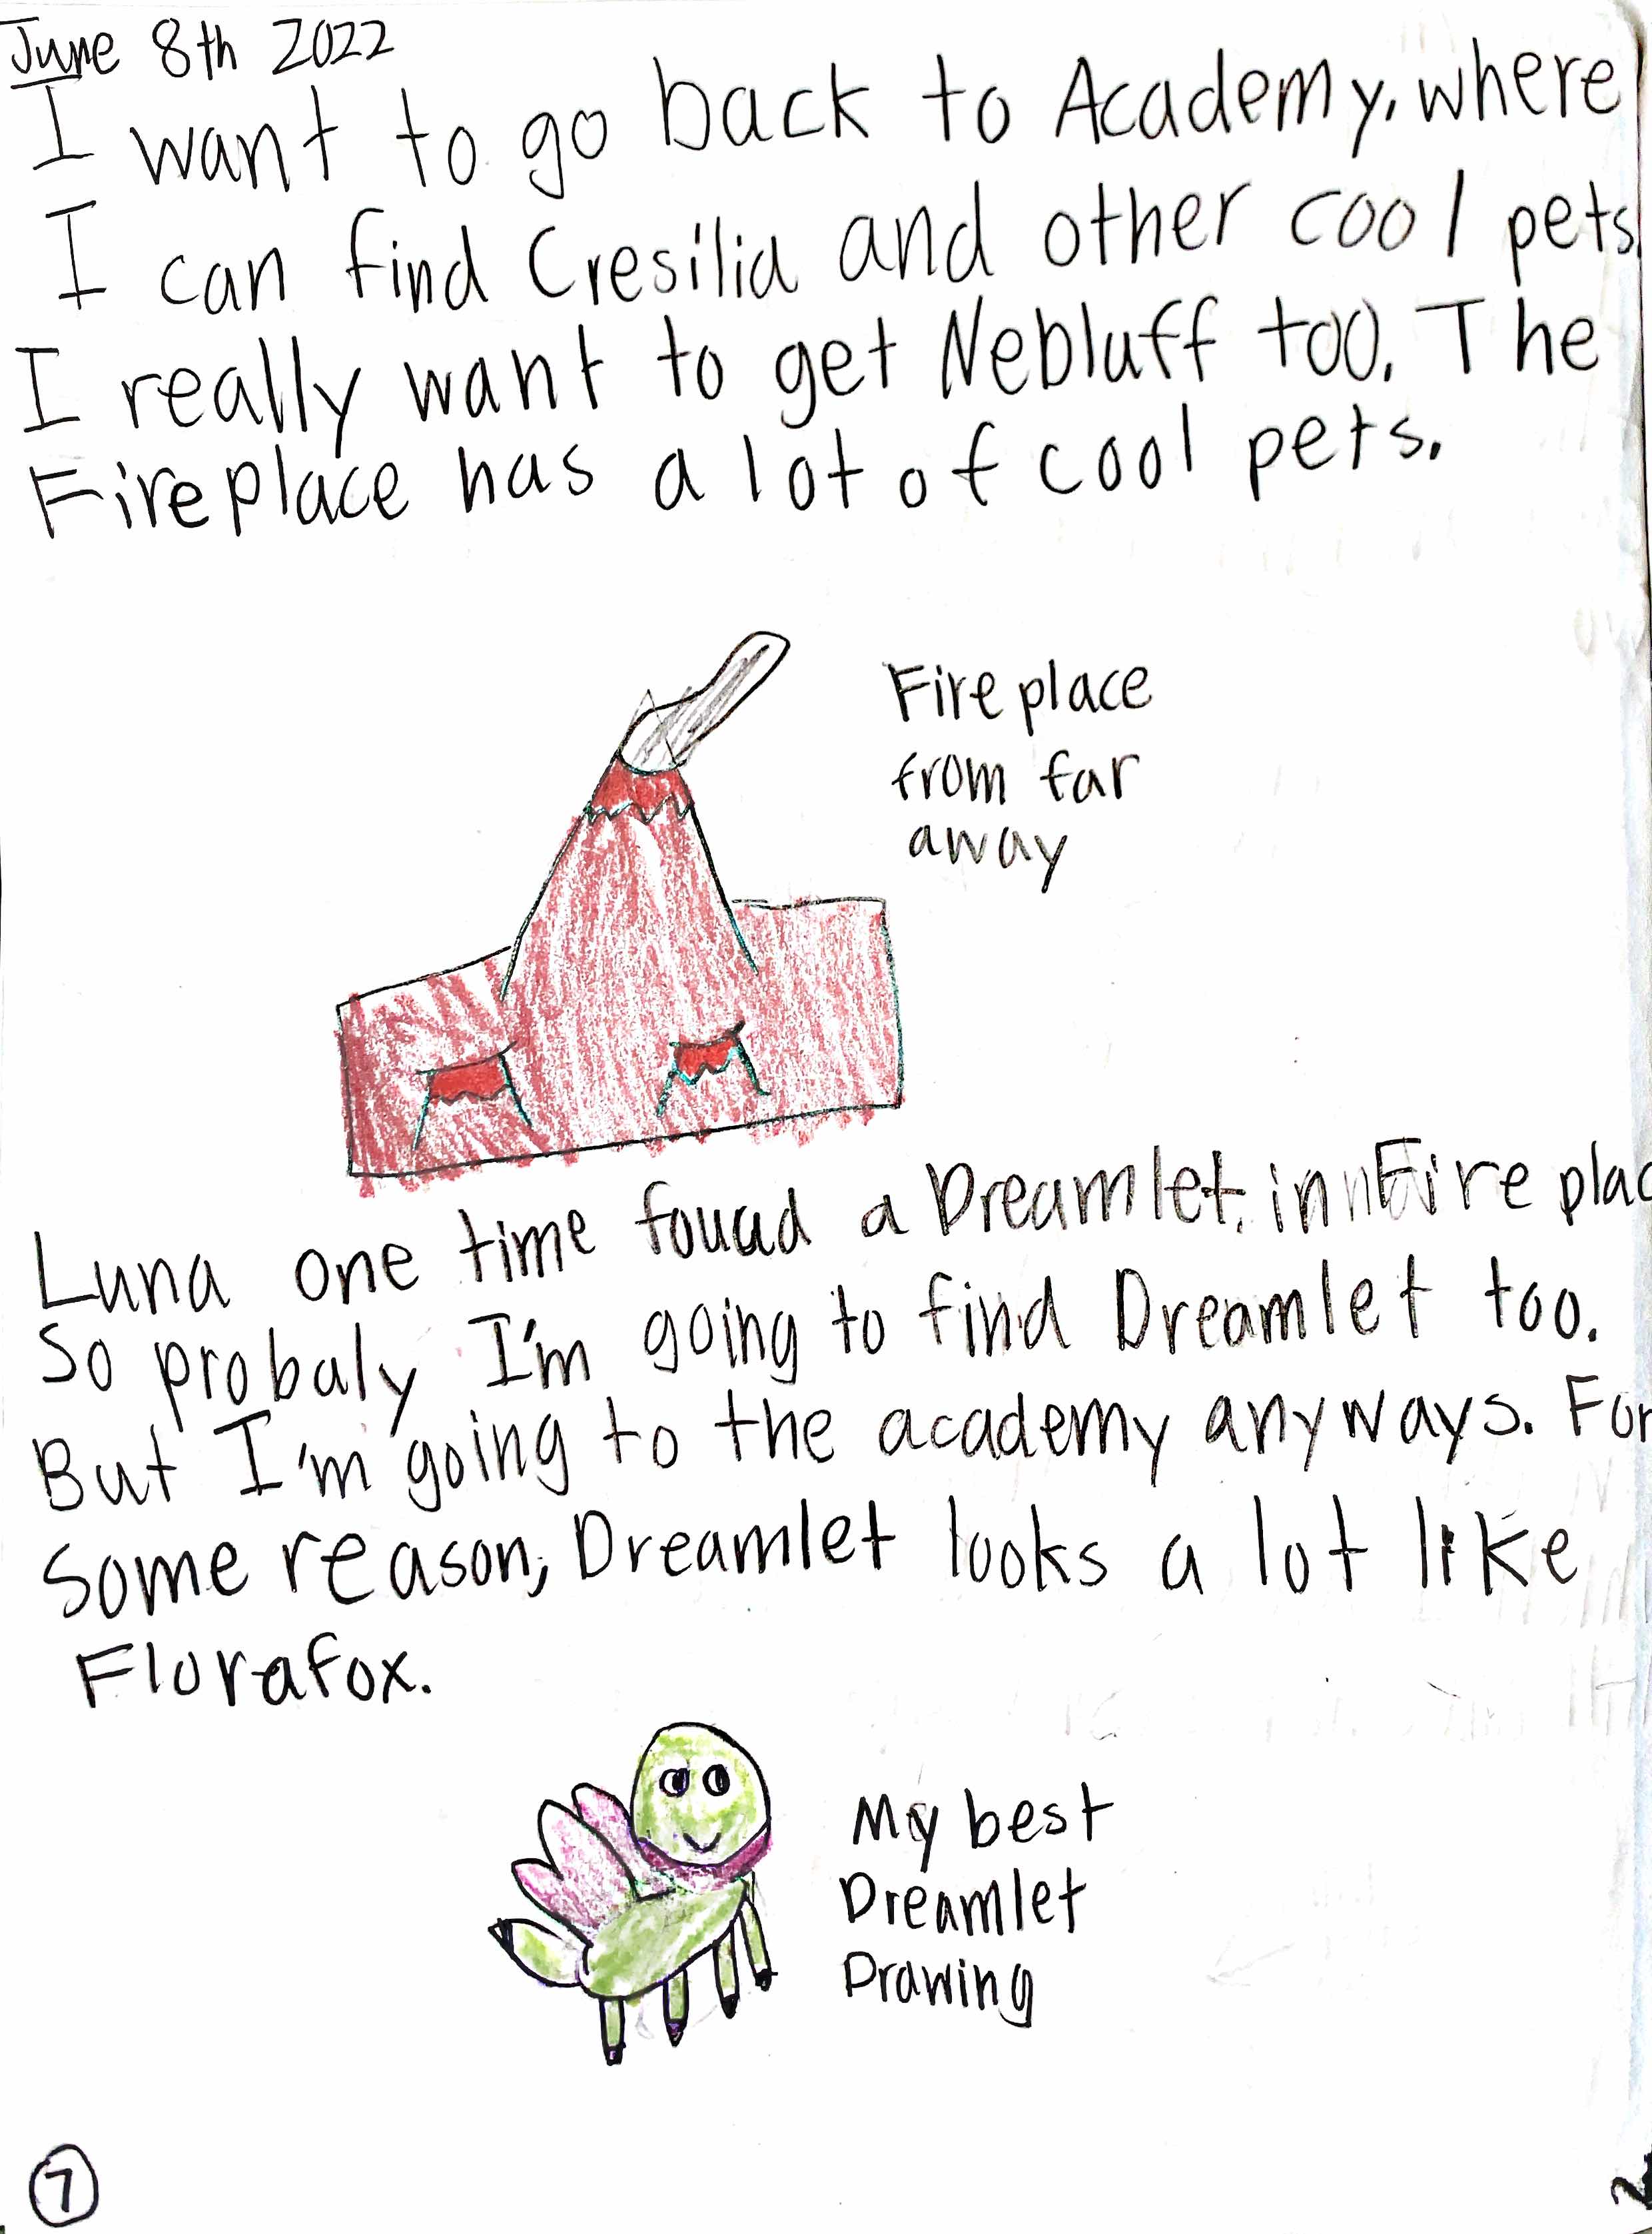 June 8th 2022
I want to go back to Academy, where
I can find Cresilia and other cool pets.
I really want to get Nebluff too. The
Fireplace has a lot of cool pets.
Fire place
from far
away
Luna one time fouud a Dreamlet. in Fire plac
So probaly I'm going to find Dreamlet too.
But I'm going to the academy anyways. For
some reason, Dreamlet looks a lot like
Florafox.
My best
Dreamlet
Drawing
7
2